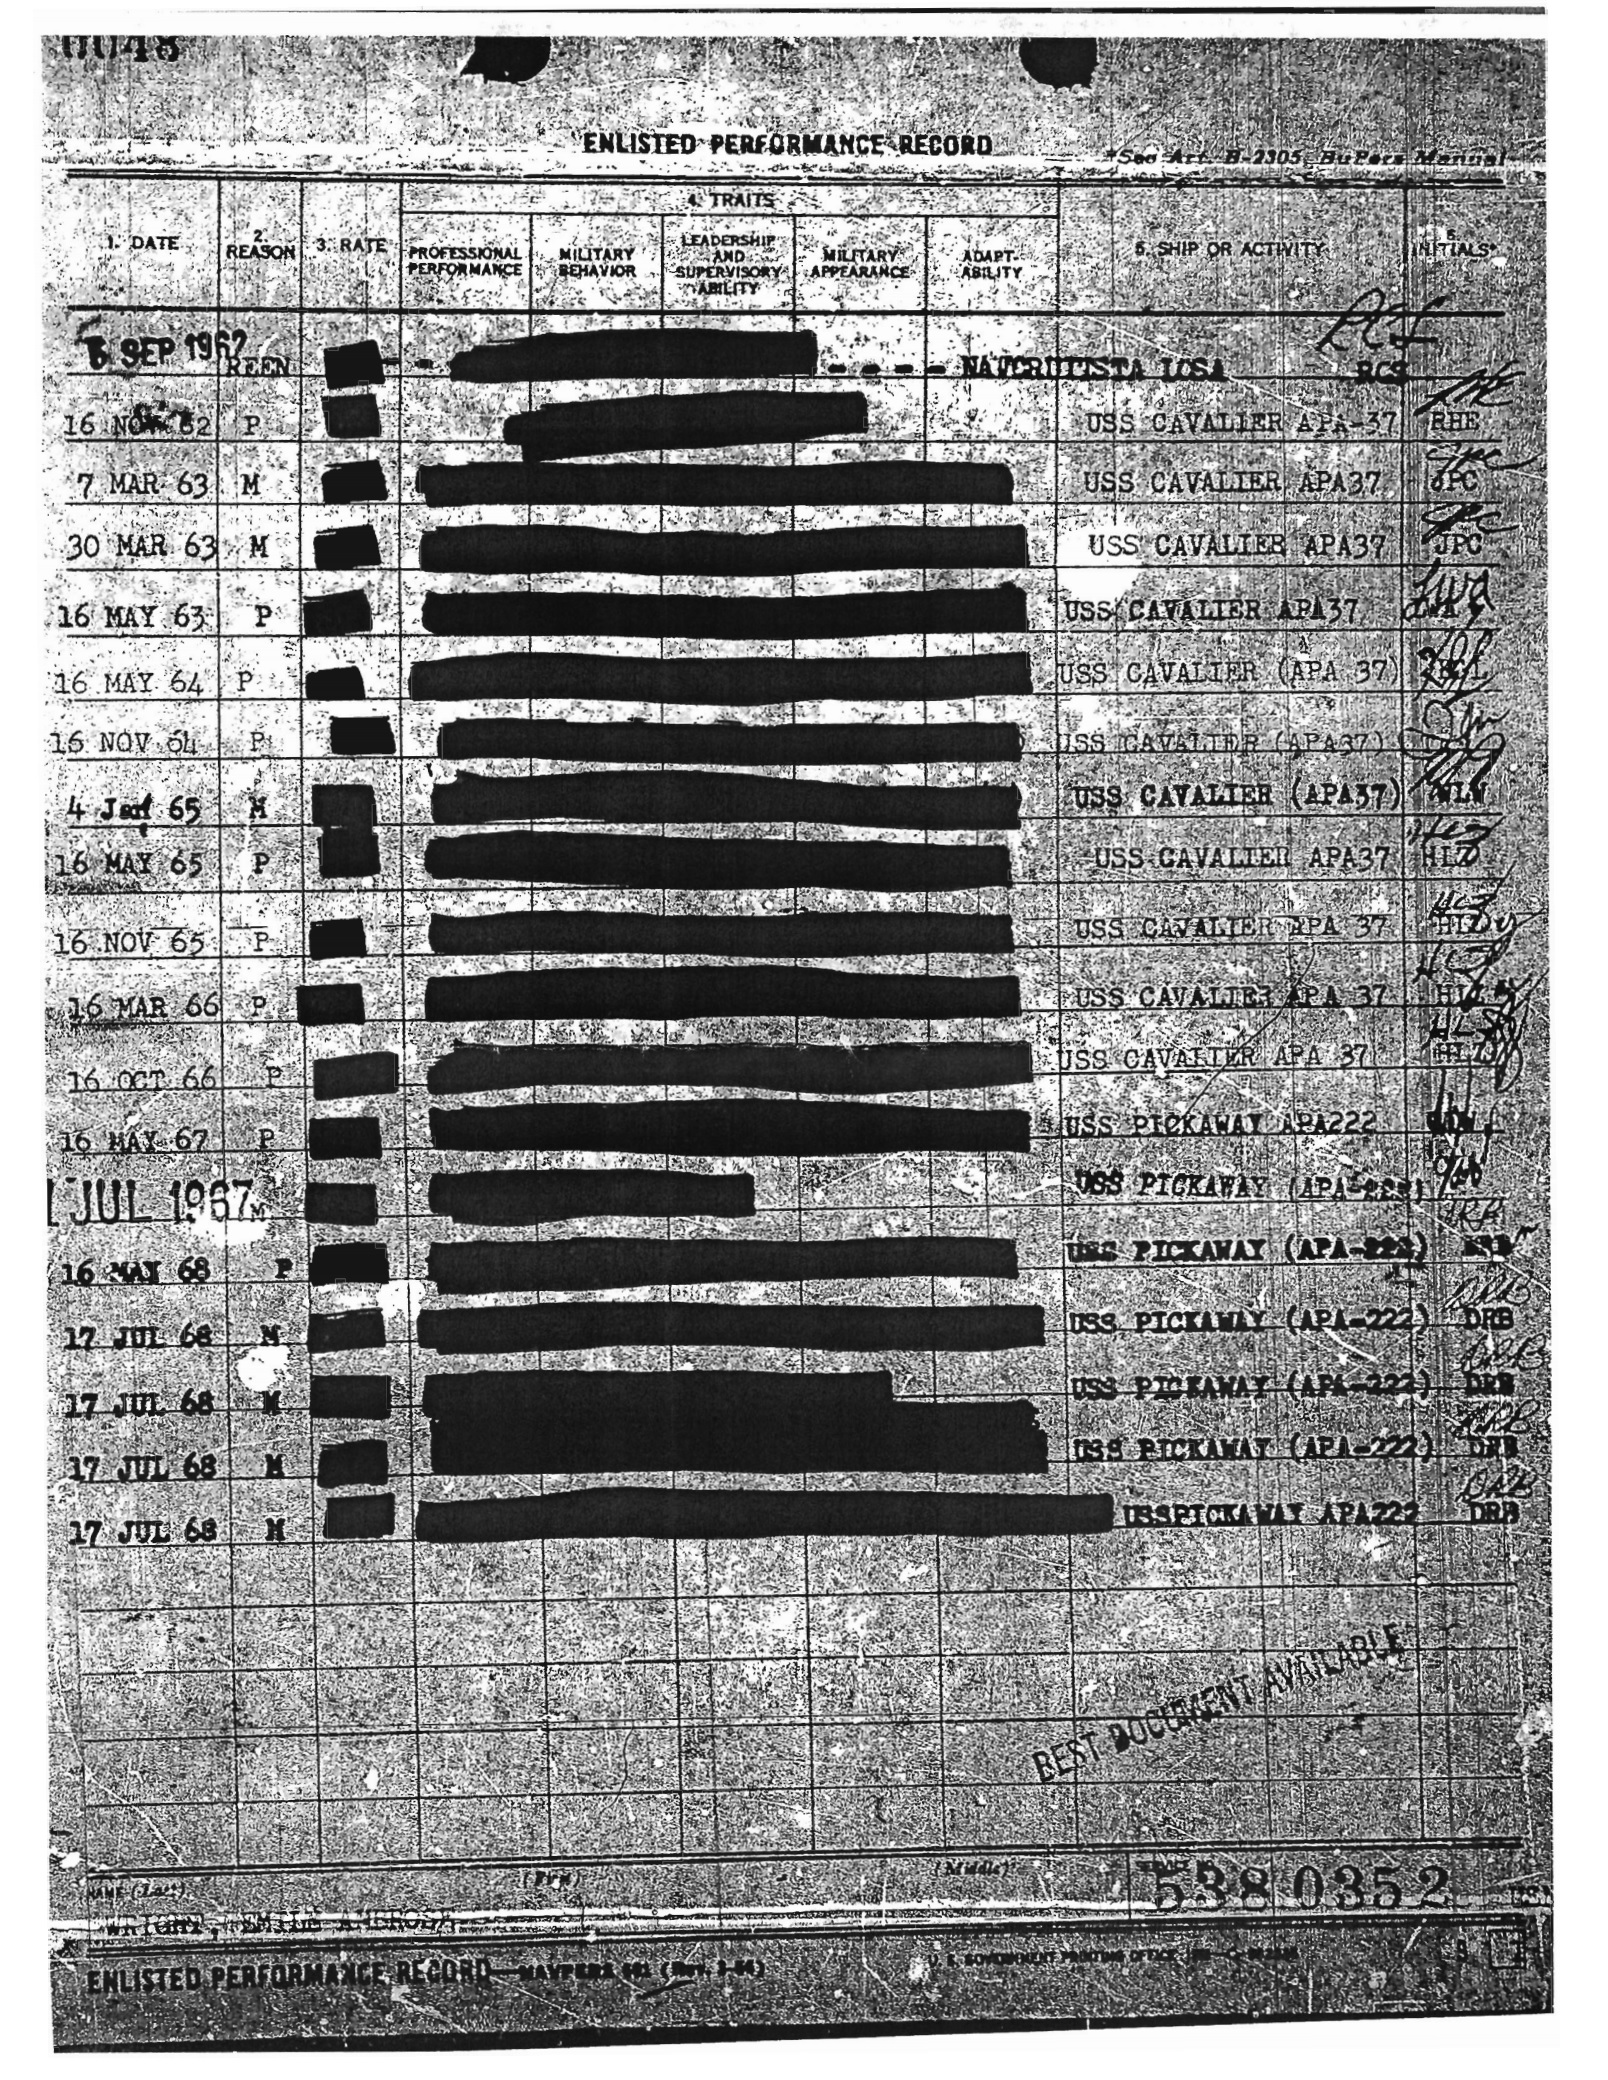 0048
ENLISTED PERFORMANCE RECORD
*See Art. B-2305, BuPers Manual
1. DATE 2. REASON 3. RATE 4. TRAITS 5. SHIP OR ACTIVITY 6. INITIALS*
PROFESSIONAL PERFORMANCE MILITARY BEHAVIOR LEADERSHIP AND SUPERVISORY ABILITY MILITARY APPEARANCE ADAPT- ABILITY
SEP 1962 REEN NAVCRUITSTA LOSA RCS
16 NOV 62 P USS CAVALIER APA-37 RHE
7 MAR 63 M USS CAVALIER APA37 JPC
30 MAR 63 M USS CAVALIER APA37 JPC
16 MAY 63 P USS CAVALIER APA37 LWA
16 MAY 64 P USS CAVALIER (APA 37)
16 NOV 64 P USS CAVALIER (APA37)
4 Jan 65 M USS CAVALIER (APA37) WLW
16 MAY 65 P USS CAVALIER APA37 HLZ
16 NOV 65 P USS CAVALIER APA 37
16 MAR 66 P USS CAVALIER APA 37
16 OCT 66 P USS CAVALIER APA 37
16 MAY 67 P USS PICKAWAY APA222
1 JUL 1967 M USS PICKAWAY (APA-222)
16 MAY 68 P USS PICKAWAY (APA-222) DRB
17 JUL 68 M USS PICKAWAY (APA-222) DRB
17 JUL 68 M USS PICKAWAY (APA-222) DRB
17 JUL 68 M USS PICKAWAY (APA-222) DRB
17 JUL 68 M USSPICKAWAY APA222 DRB
BEST DOCUMENT AVAILABLE
NAME (Last) (First) (Middle) SERVICE
538 03 52
WRIGHT, EMILE
ENLISTED PERFORMANCE RECORD—NAVPERS 601 (Rev.
U. S. GOVERNMENT PRINTING OFFICE
9